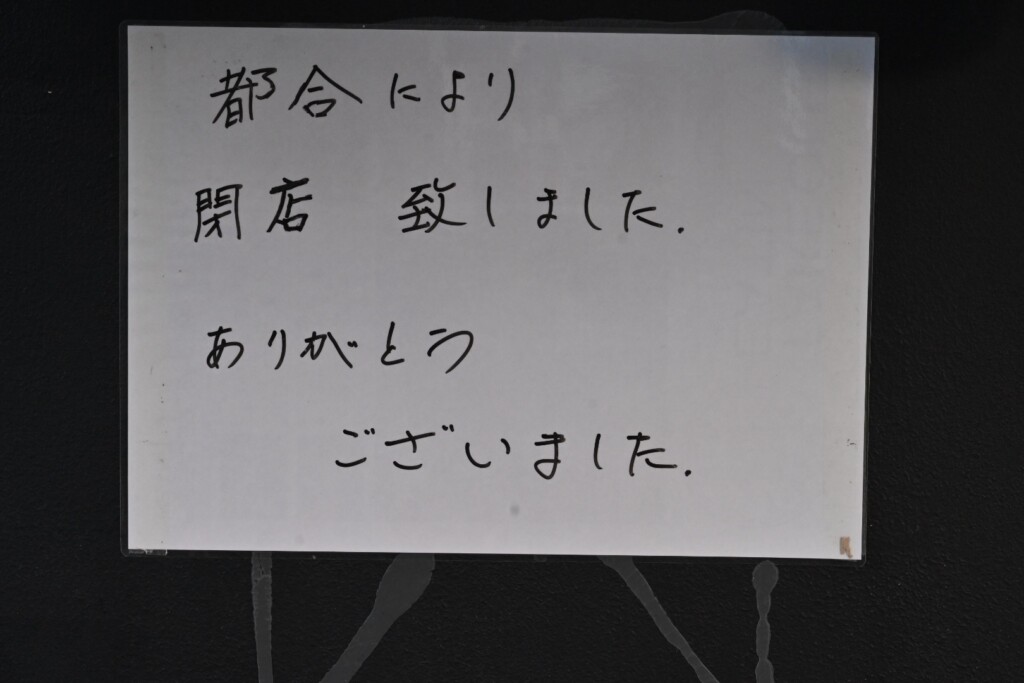 都合により
閉店 致しました.
ありがとう
ございました.